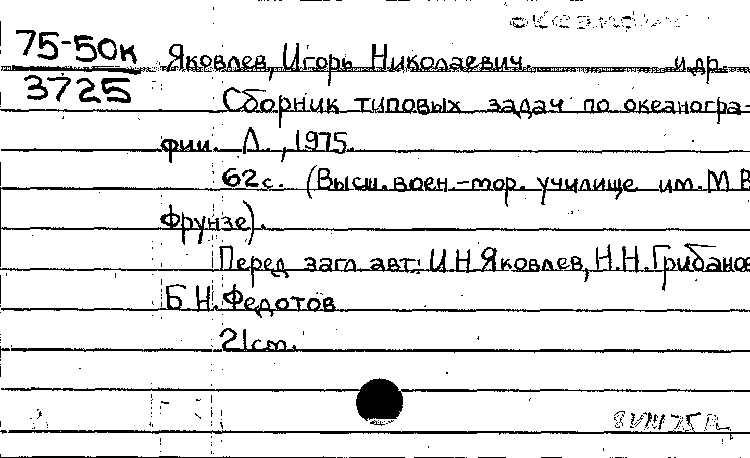 75-50к
3725
Яковлев, Игорь Николаевич и др.
Сборник типовых задач по океаногра-
фии. Л., 1975.
62с. (Высш. воен.-мор. училище им. М В
Фрунзе).
Перед загл. авт.: И.Н. Яковлев, Н.Н. Грибанов
Б.Н. Федотов
21см.